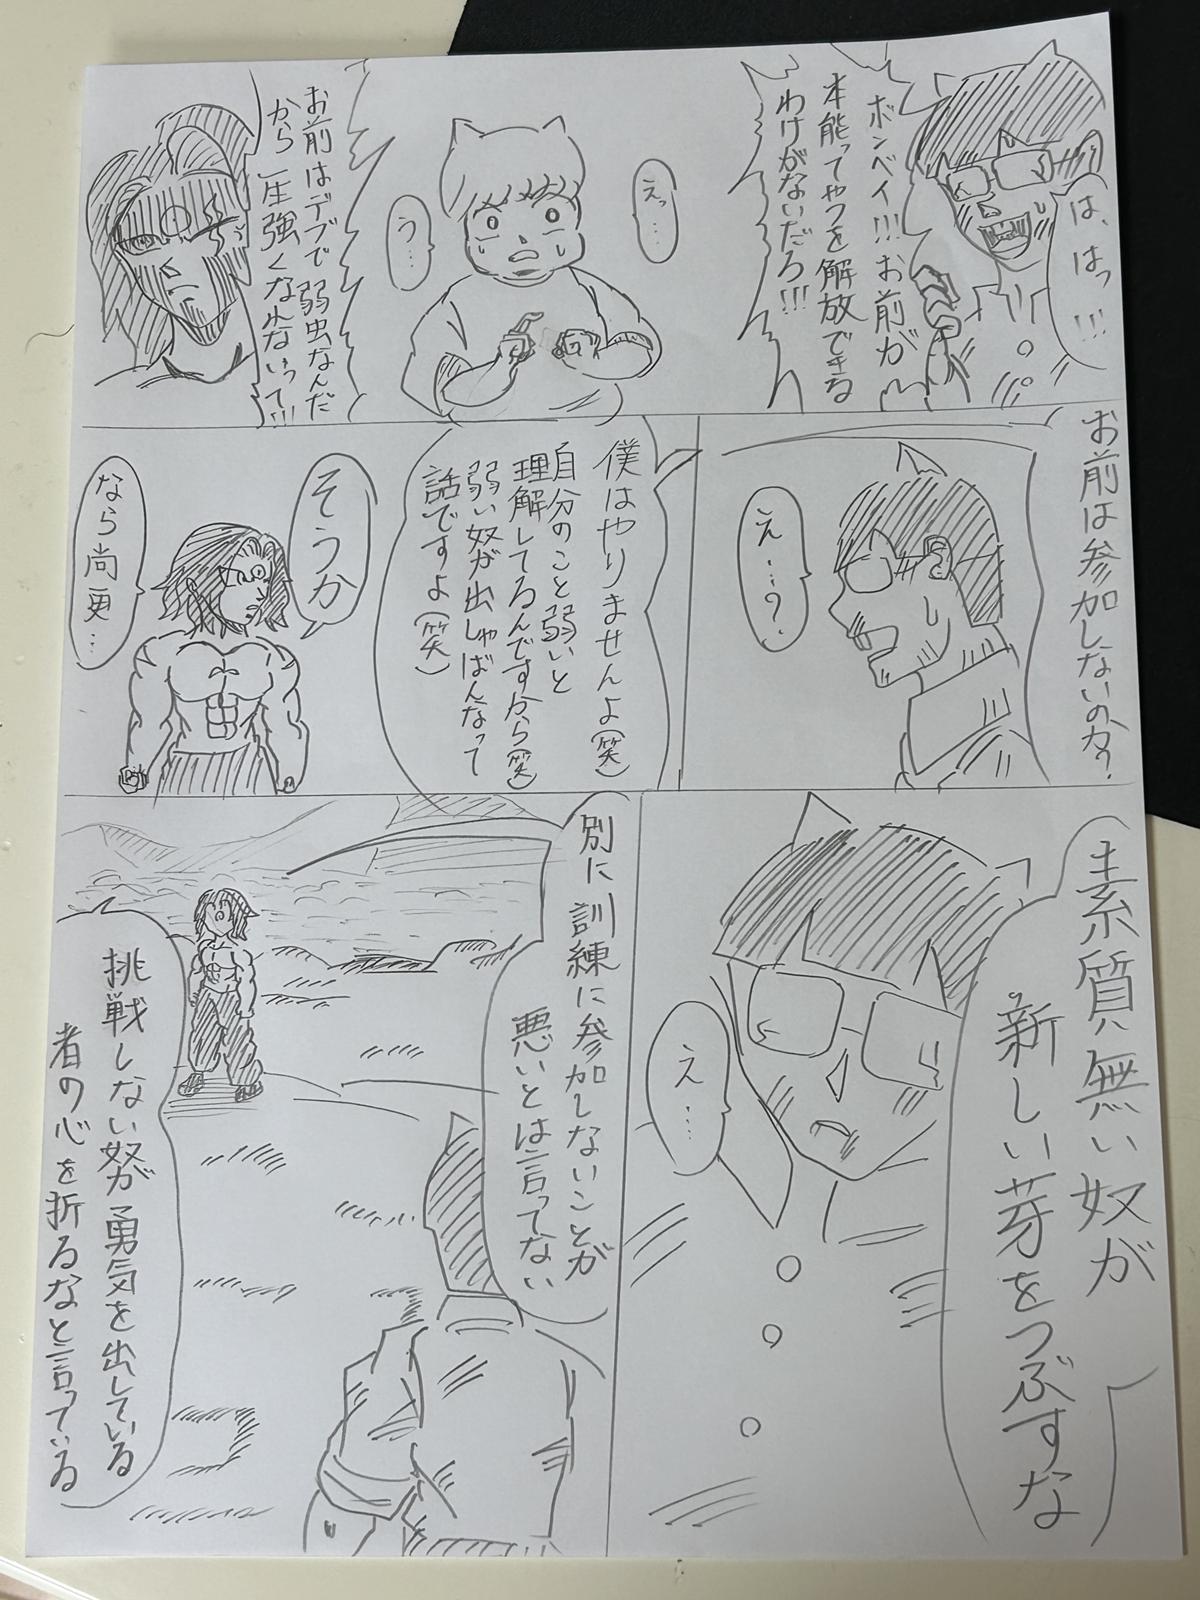 は、はっ!!!
ボンベイ!!!お前が
本能ってやつを解放できる
わけがないだろ!!!
えっ…
う…
お前はデブで弱虫なんだ
から一生強くなれないって!!!
お前は参加しないのか?
え…?
僕はやりませんよ(笑)
自分のこと弱いと
理解してるんですから(笑)
弱い奴が出しゃばんなって
話ですよ(笑)
そうか
なら尚更…
素質無い奴が
新しい芽をつぶすな
え…
別に訓練に参加しないことが
悪いとは言ってない
挑戦しない奴が勇気を出している
者の心を折るなと言っている